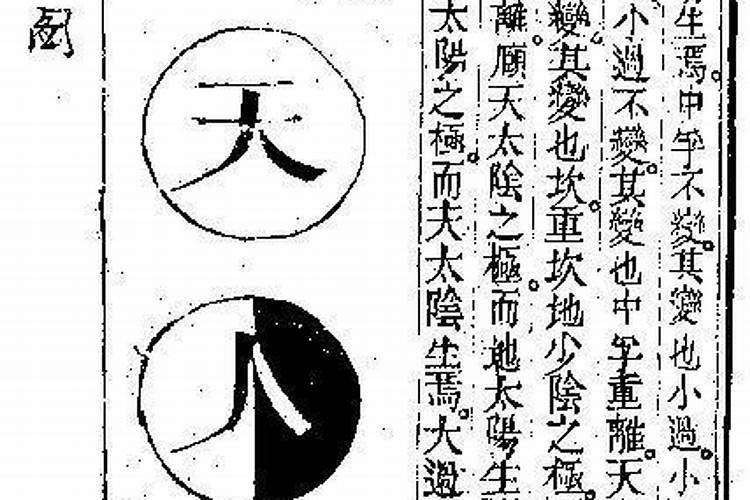 生焉。中孚不變。其變也小過。小
小過不變。其變也中孚重離。天
變。其變也坎。重坎地少陰之極。
離。頤天太陰之極。而地太陽生
太陽之極。而天太陰生焉。大過
天
人